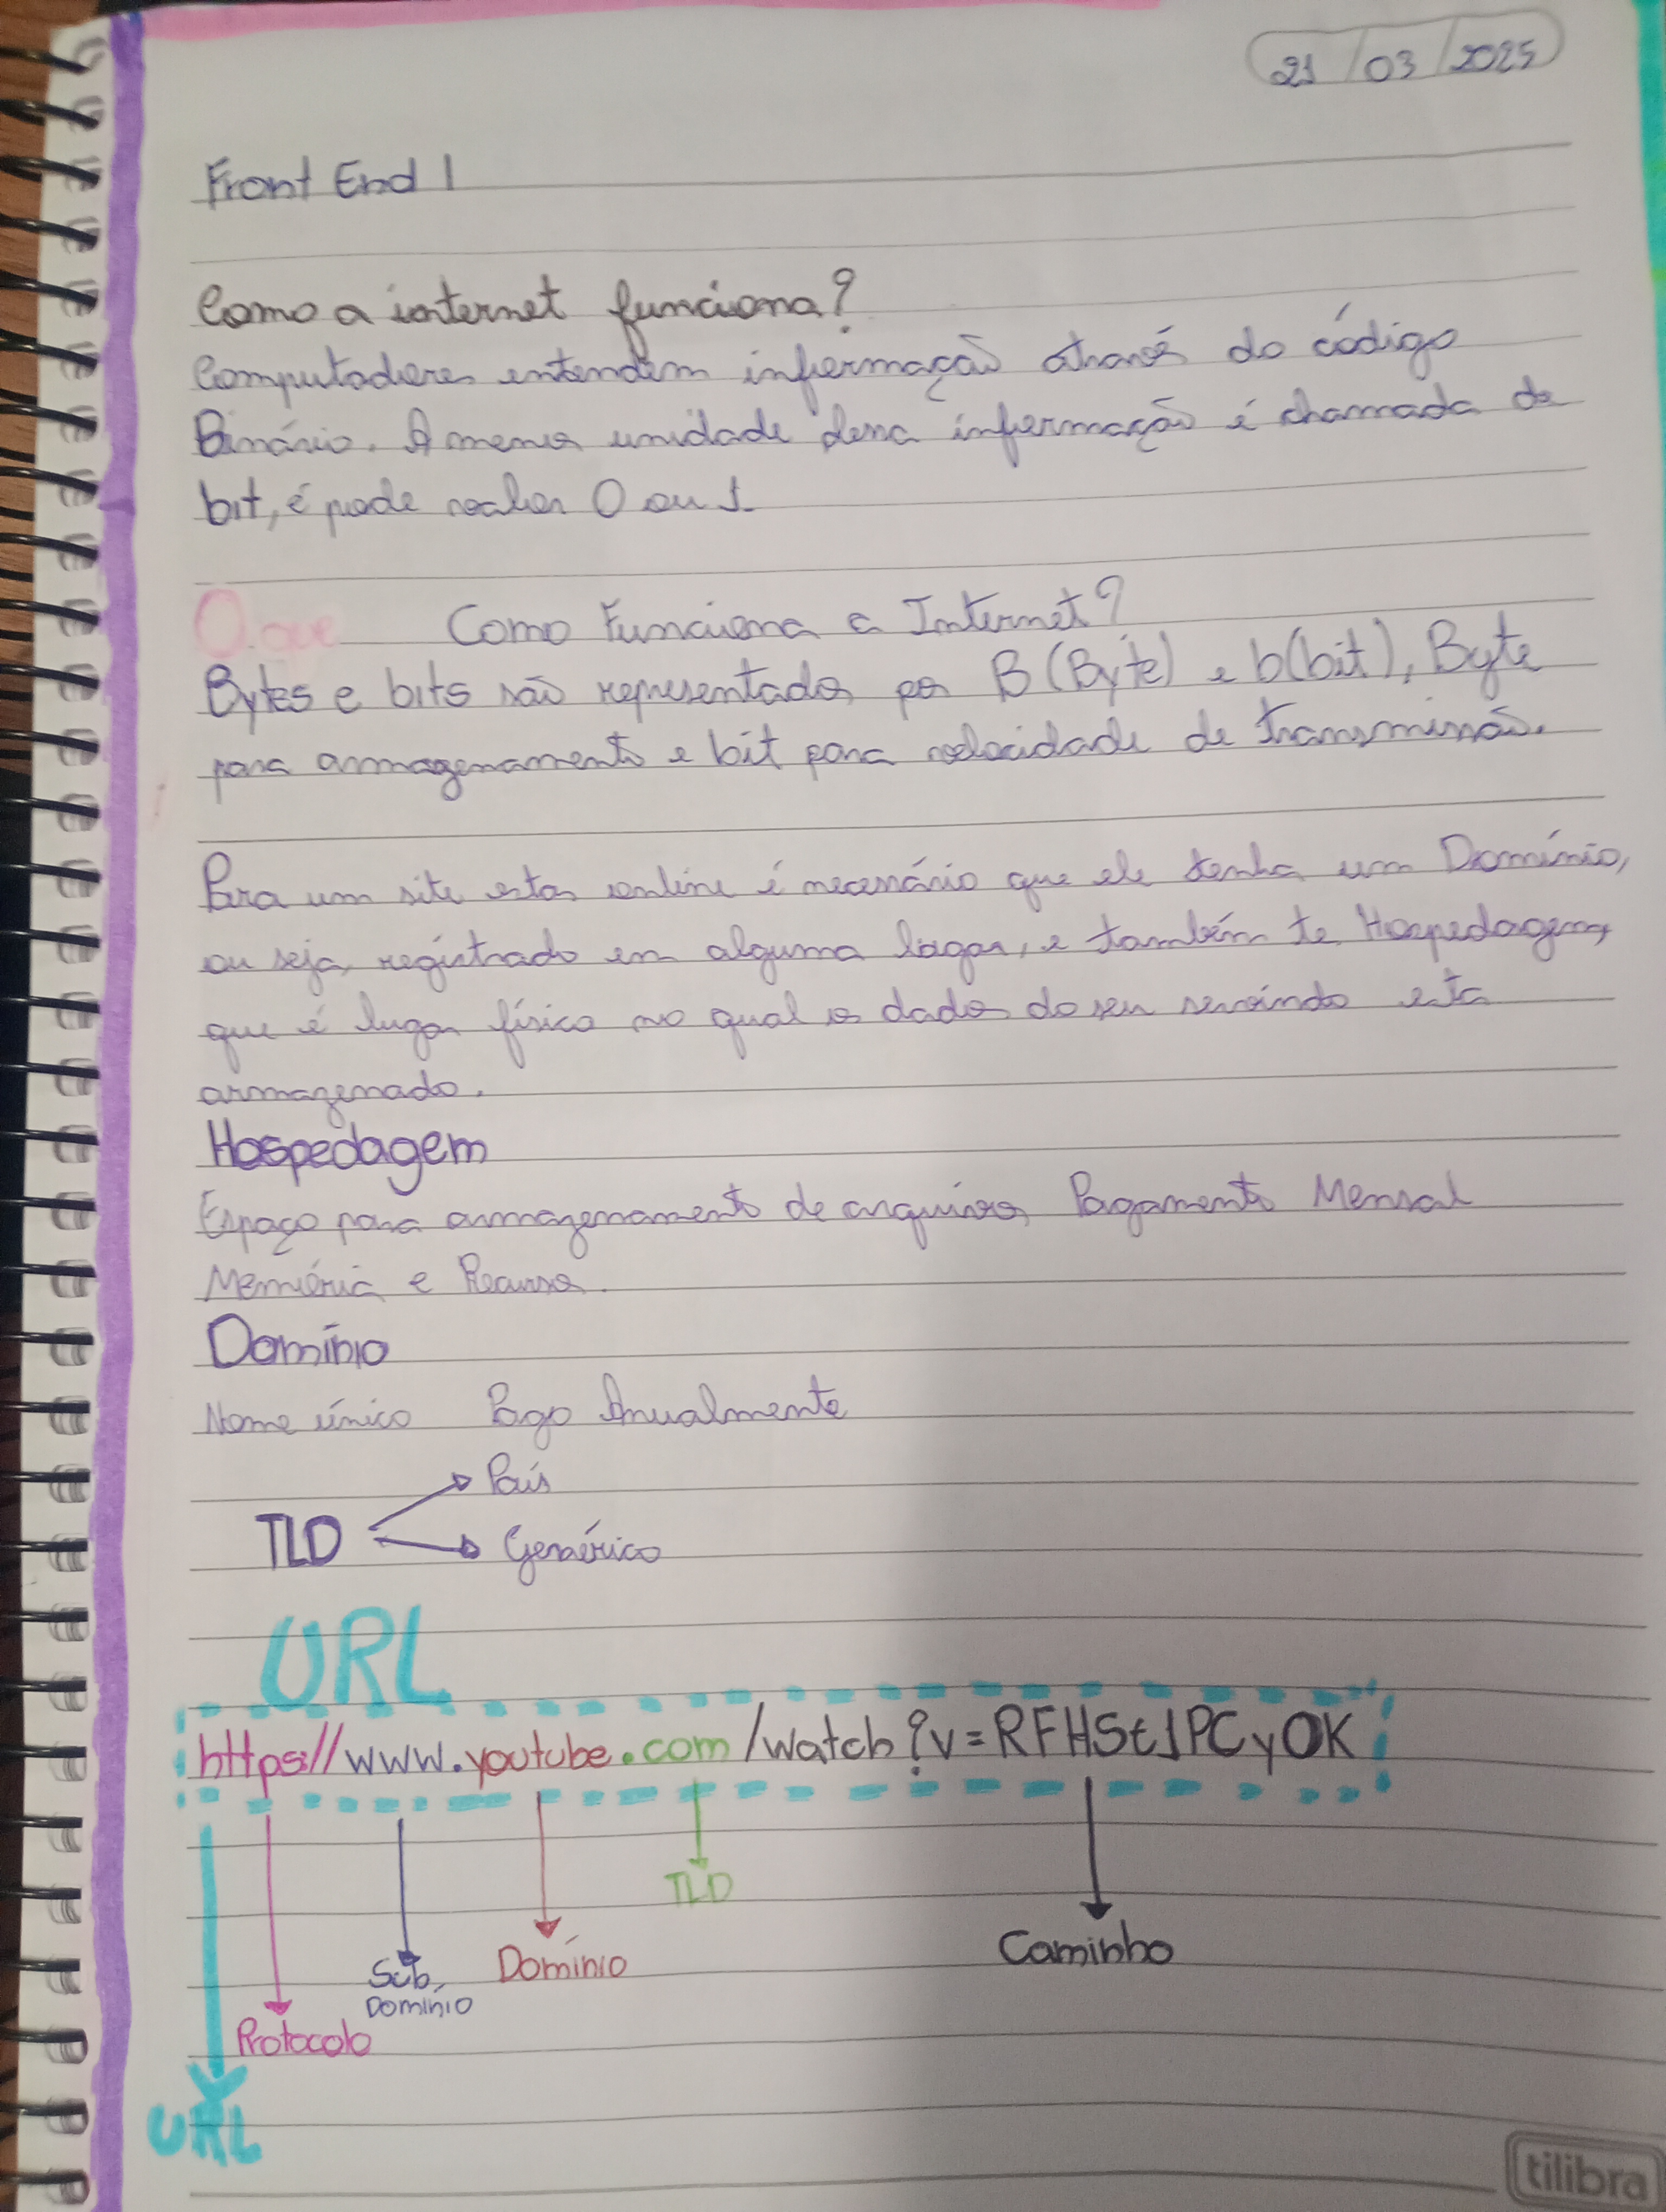 21/03/2025
Front End 1
Como a internet funciona?
Computadores entendem informação através do código
Binário. A menor unidade dessa informação é chamada de
bit, é pode valer 0 ou 1.
O que Como Funciona a Internet?
Bytes e bits são representados por B (Byte) e b(bit), Byte
para armazenamento e bit para velocidade de transmissão.
Para um site estar online é necessário que ele tenha um Domínio,
ou seja, registrado em alguma lugar, e também te Hospedagem,
que é lugar físico no qual os dados do seu servindo esta
armazenado.
Hospedagem
Espaço para armazenamento de arquivos Pagamento Mensal
Memória e Recursos.
Domínio
Nome único Pago Anualmente
País
TLD
Genérico
URL
https://www.youtube.com/watch?v=RFHSt1PCyOK
TLD
Caminho
Sub. Domínio
Domínio
Protocolo
URL
tilibra